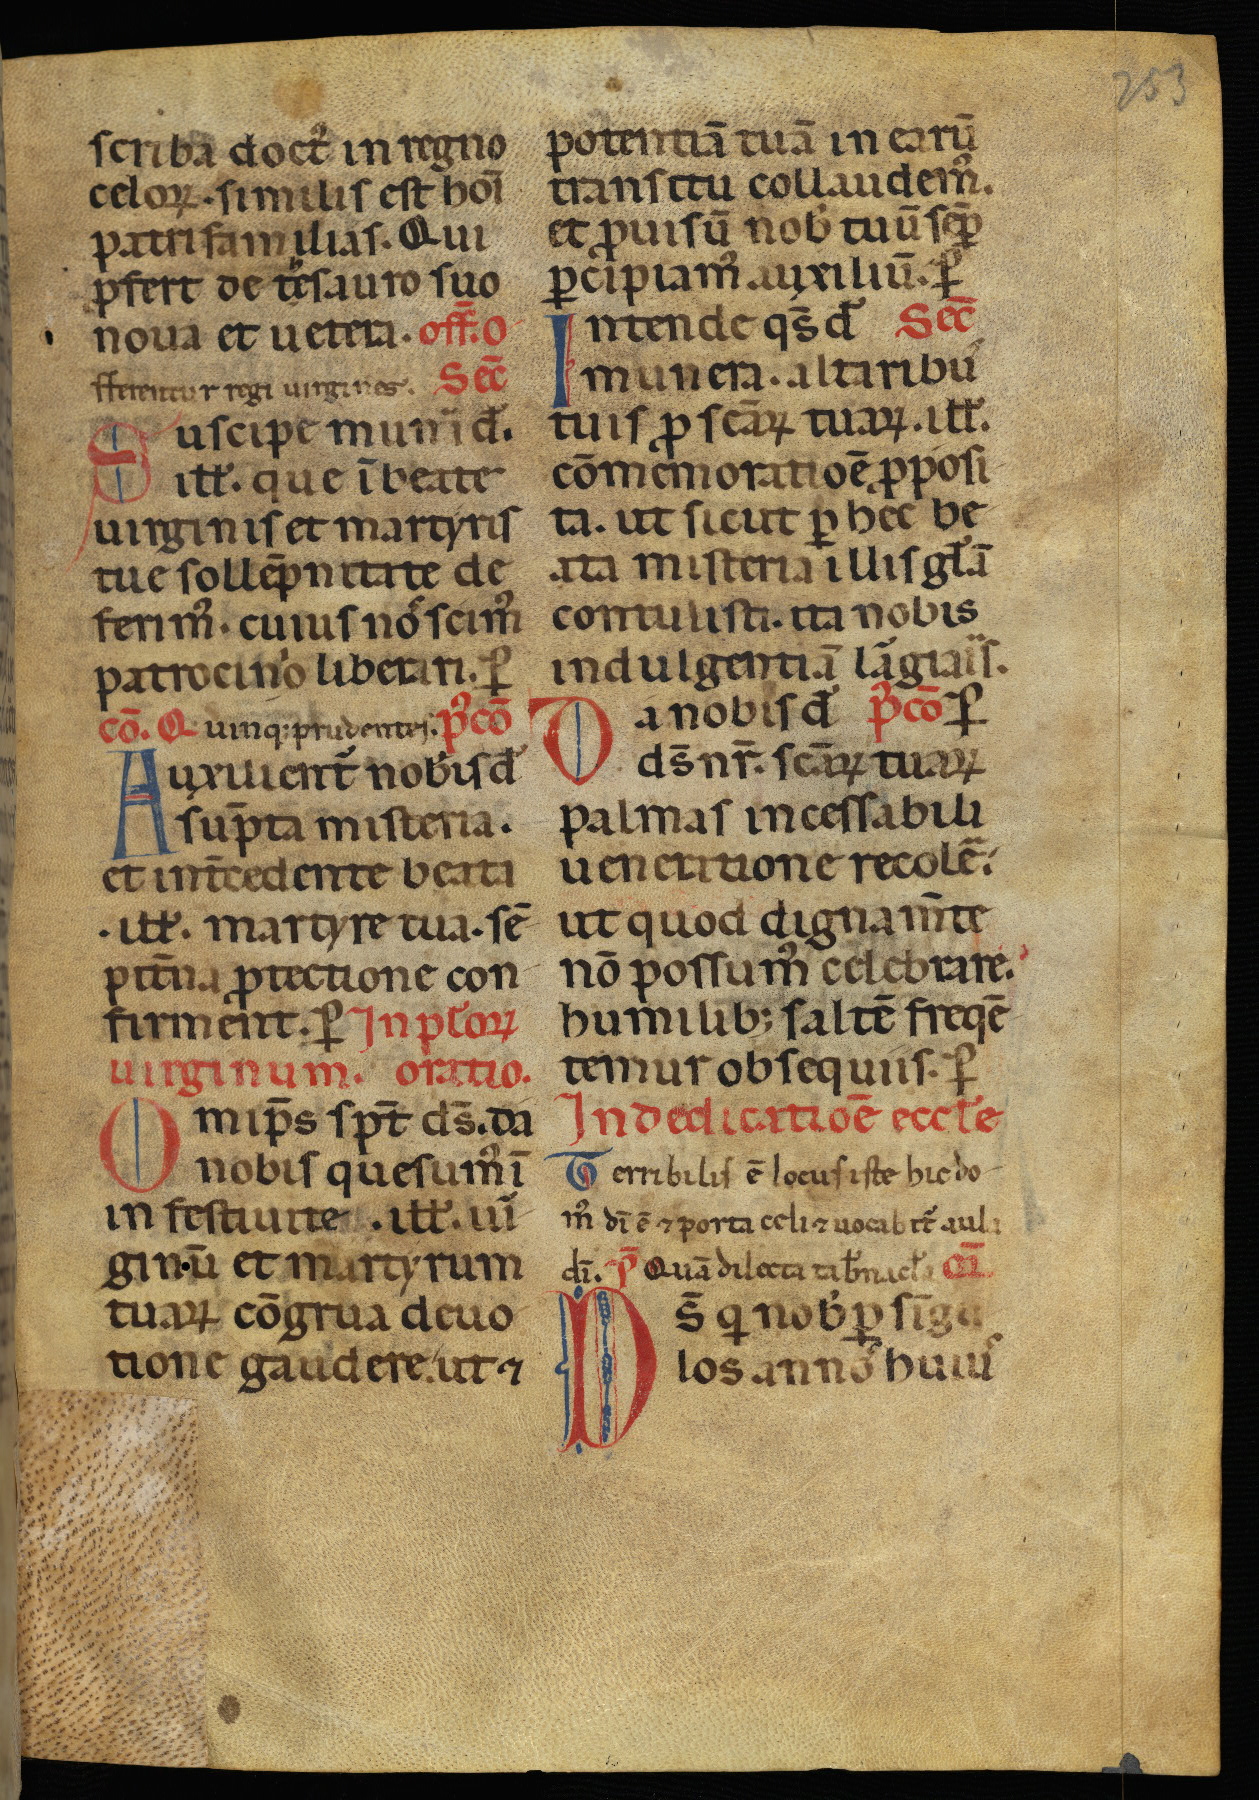 253
scriba doct᷒ in regno
celoꝝ. similis est hoī
patrifamilias. Qui
ꝓfert de tesauro suo
noua et uetera. off̄. O
fferentur regi uirgines. Sec̄
Suscipe mun̄ d̄.
ill̄. que ī beate
uirginis et martyris
tue sollēpnitate de
ferim᷒. cuius nos scim᷒
patrocinio liberari. ꝑ
cō. Quinq; prudentes. p᷒cō
Auxilient᷑ nobis d̄
sūpta misteria.
et int̄cedente beata
.ill̄. martyre tua. sē
pit̄na ꝓtectione con
firment. ꝑ In pl̄oꝝ
uirginum. oratio.
Omīps sp̄t ds̄. da
nobis quesum᷒ ī
in festiuite .ill̄. uī
ginū et martyrum
tuaꝝ cōgrua deuo
tione gaudere. ut ⁊
potentiā tuā in earū
transitu collaudem᷒.
et ꝓuisū nob̄ tuū sēp̄
ꝑcipiam᷒ auxiliū. ꝑ
Intende qs̄ d̄ Sec̄
munera. altaribu᷒
tuis ꝓ scāꝝ tuaꝝ .ill̄.
cōmemoratioē ꝓposi
ta. ut sicut ꝑ hec be
ata misteria illis gl̄ā
contulisti. ita nobis
indulgentiā largiaris.
Da nobis d̄ p᷒cō ꝑ
ds̄ nr̄. scāꝝ tuaꝝ
palmas incessabili
ueneratione recolē᷒.
ut quod digna mēte
nō possum᷒ celebrare.
humilib; saltē freqē
temur obsequiis. ꝑ
In dedicatioē eccl̄e
Terribilis ē locus iste hic do
m᷒ dī ē ⁊ porta celi ⁊ uocabit᷑ aula
dī. p̄ Quā dilecta tab̄nacl̄a
Ds̄ qi nob̄ ꝑ sīgu
los annos huius